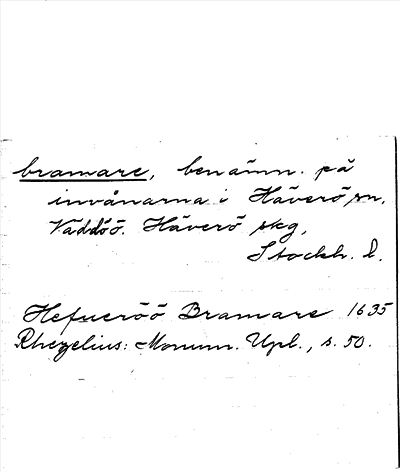 bramare, benämn. på
invånarna i Häverö sn,
Väddö o. Häverö skg,
Stockh. l.
Hefueröö Bramare 1635
Rhezelius: Monum. Upl., s. 50.